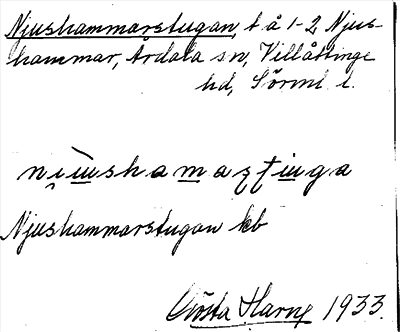 Njushammarstugan, t å 1-2 Njus-
hammar, Årdala sn, Villåttinge
hd, Sörml l.
Njushammarstugan kb
Gösta Harne 1933.